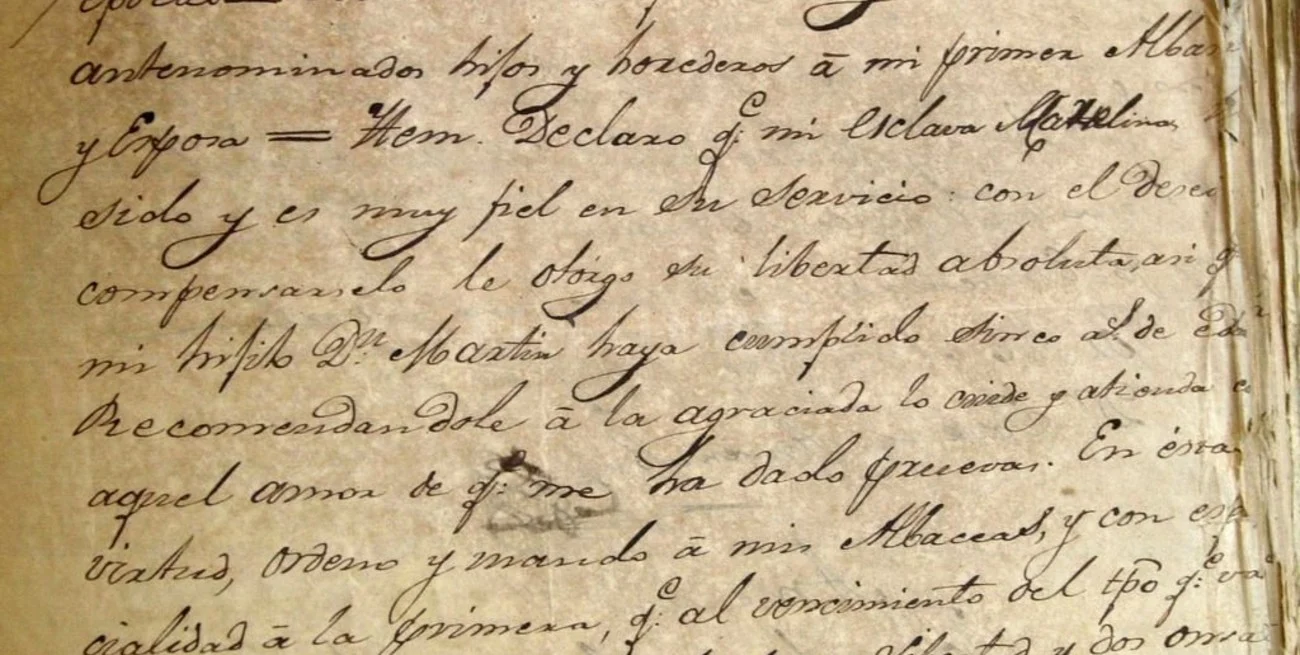 antenominados hijos y horederos ā mi primer Alba
y Esposa = Item. Declaro q.e mi esclava Matalina
sido y es muy fiel en su servicio: con el dese
compensarselo le otorgo su libertad absoluta, asi q
mi hijito D.n Martin haya cumplido sinco a.s de Eda
Recomendandole ā la agraciada lo cuide y atienda
aquel amor de q.e me ha dado pruevas. En ésta
virtud, ordeno y mando ā mis Albaceas, y con esp
cialidad ā la primera, q.e al vencimiento del tpō q.e va
libertad y dos onsa